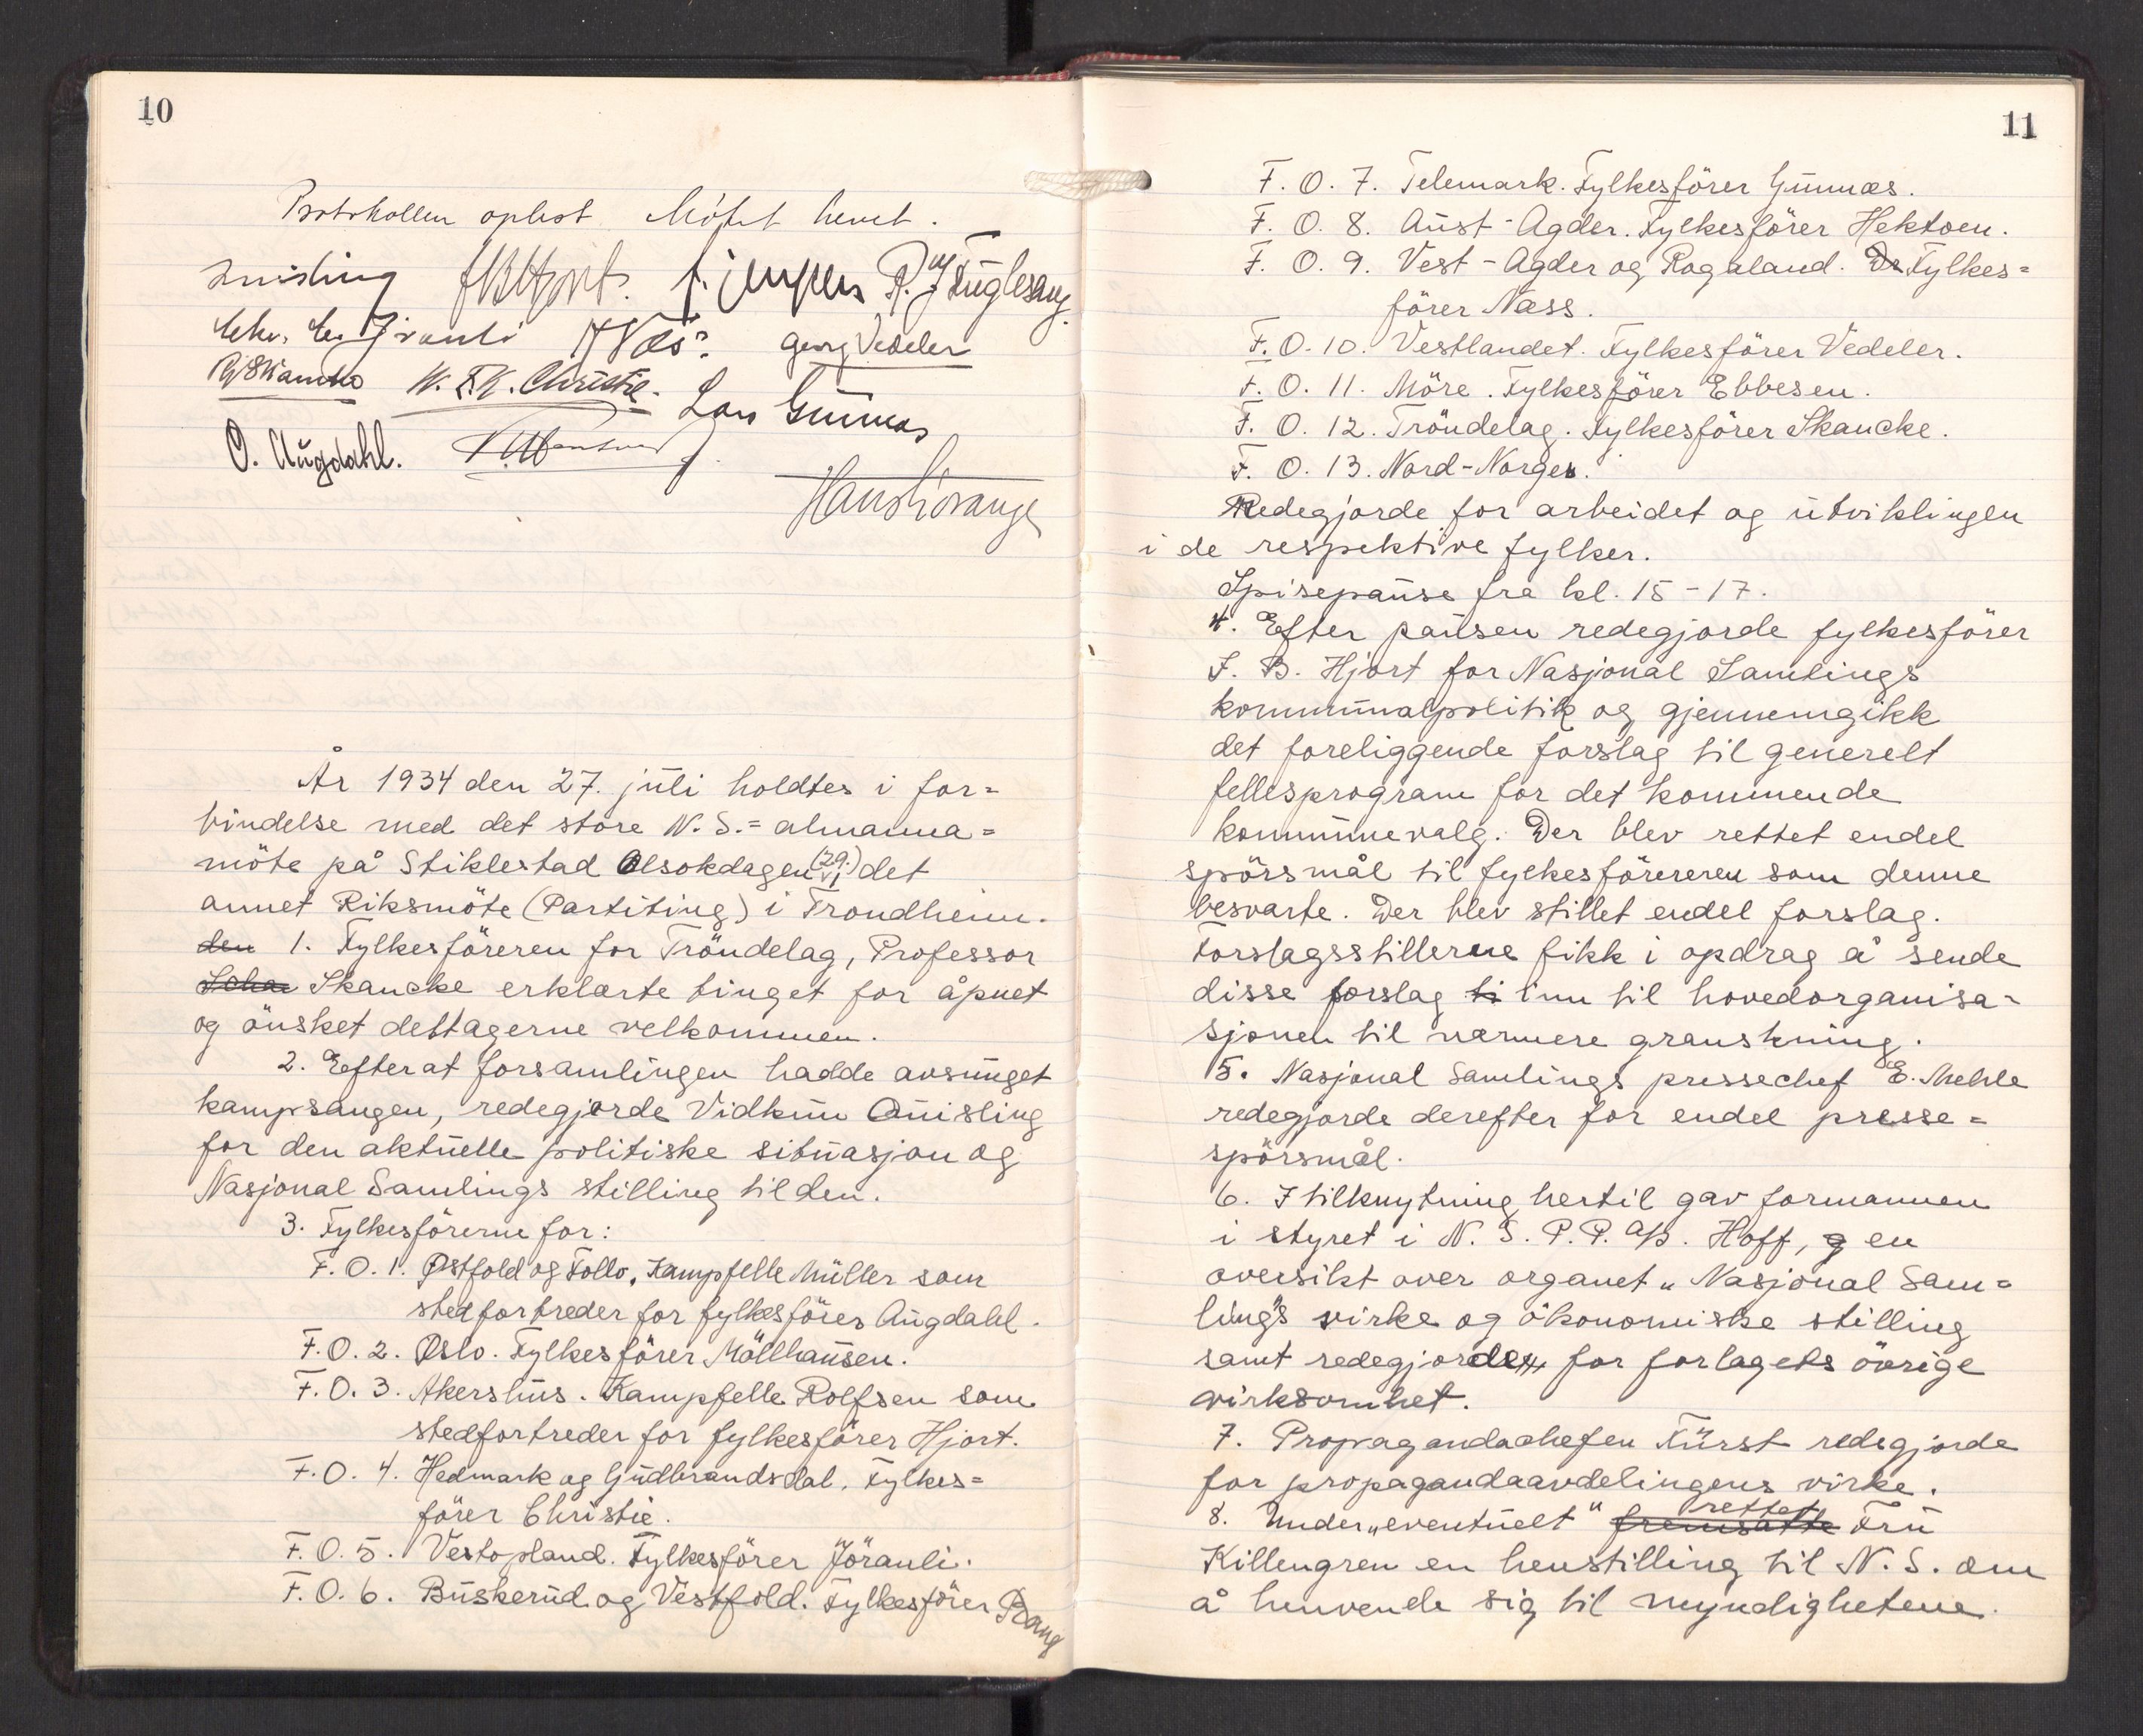 10
Protokollen oplest. Møtet hevet.
Quisling R. J Fuglesang
Georg Vedeler
RSkancke W. F. K. Christie. Lars Gunnæs
O. Augdahl.
År 1934 den 27. juli holdtes i for=
bindelse med det store N. S.=almanna=
möte på Stiklestad Olsokdagen (29.) det
annet Riksmöte (Partiting) i Trondheim.
den 1. Fylkesföreren for Tröndelag, Professor
Skancke erklærte tinget for åpnet
og önsket deltagerne velkommen.
2. Efter at forsamlingen hadde avsunget
kampsangen, redegjorde Vidkun Quisling
for den aktuelle politiske situasjon og
Nasjonal Samlings stilling til den.
3. Fylkesförerne for:
F. O. 1. Østfold og Follo. Kampfelle Müller som
stedfortreder for fylkesförer Augdahl.
F. O. 2. Oslo. Fylkesförer Möllhausen.
F. O. 3. Akershus. Kampfelle Rolfsen som
stedfortreder for fylkesförer Hjort.
F. O. 4. Hedmark og Gudbrandsdal. Fylkes=
förer Christie.
F. O. 5. Vestopland. Fylkesförer Jöranli.
F. O. 6. Buskerud og Vestfold. Fylkesförer Bang
11
F. O. 7. Telemark. Fylkesförer Gunnæs.
F. O. 8. Aust-Agder. Fylkesförer Hektoen.
F. O. 9. Vest-Agder og Rogaland. Dr Fylkes=
förer Næss.
F. O. 10. Vestlandet. Fylkesförer Vedeler.
F. O. 11. Möre. Fylkesförer Ebbesen.
F. O. 12. Tröndelag. Fylkesförer Skancke.
F. O. 13. Nord-Norge.
Redegjorde for arbeidet og utviklingen
i de respektive fylker.
Spisepause fra kl. 15-17.
4. Efter pausen redegjorde fylkesförer
J. B. Hjort for Nasjonal Samlings
kommunalpolitik og gjennemgikk
det foreliggende forslag til generelt
fellesprogram for det kommende
kommunevalg. Der blev rettet endel
spörsmål til fylkesföreren som denne
besvarte. Der blev stillet endel forslag.
Forslagsstillerne fikk i opdrag å sende
disse forslag ti inn til hovedorganisa=
sjonen til nærmere granskning.
5. Nasjonal Samlings pressechef E. Mehle
redegjorde derefter for endel presse=
spörsmål.
6. I tilknytning hertil gav formannen
i styret i N. S. P. P. A/S. Hoff, en
oversikt over organet „Nasjonal Sam=
ling"s virke og ökonomiske stilling
samt redegjorde for forlagets övrige
virksomhet.
7. Propagandachefen Fürst redegjorde
for propagandaavdelingens virke.
8. Under „eventuelt" fremsatte rettet Fru
Killengren en henstilling til N. S. om
å henvende sig til myndighetene.